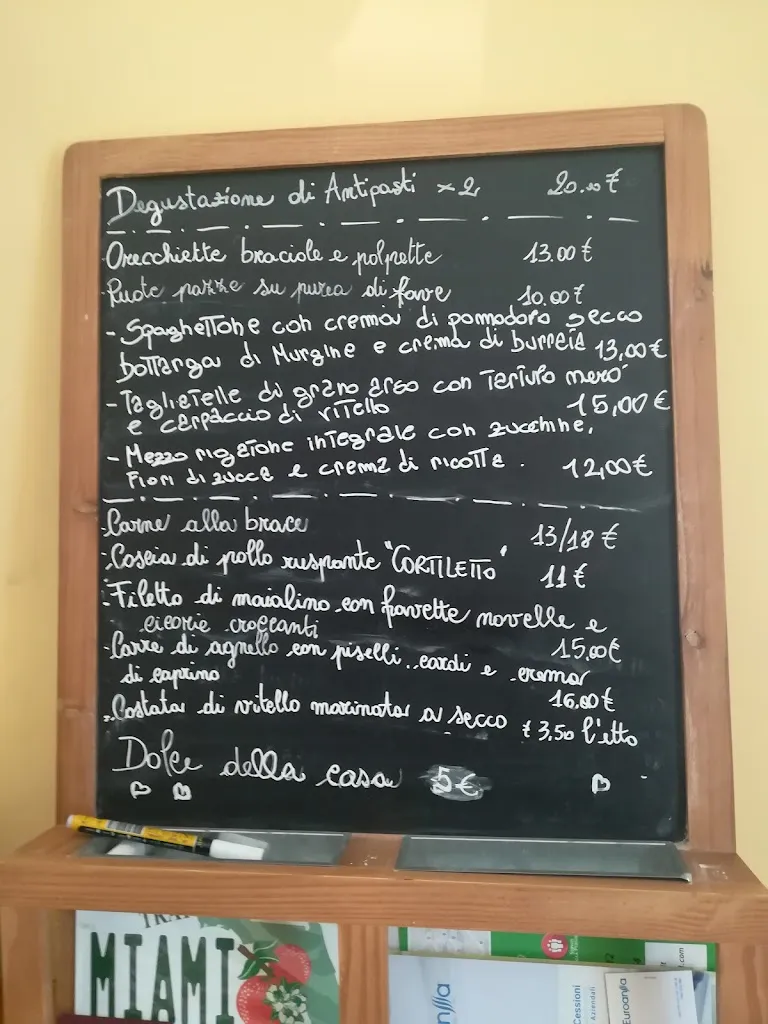 Degustazione di Antipasti x2 20.00 €
Orecchiette braciole e polpette 13.00 €
Ruote pazze su purea di fave 10.00 €
- Spaghettone con crema di pomodoro secco
bottarga di Murgine e crema di burrata 13,00 €
- Tagliatelle di grano arso con Tartufo nero
e carpaccio di vitello 15,00 €
- Mezzo rigatone integrale con zucchine,
Fiori di zucca e crema di ricotta. 12,00 €
- Carne alla brace 13/18 €
- Coscia di pollo ruspante "CORTILETTO" 11 €
- Filetto di maialino con favette novelle e
cicorie croccanti 15,00 €
- Carre di agnello con piselli, cardi e crema
di caprino 16,00 €
- Costata di vitello marinata a secco € 3,50 l'etto
Dolce della casa 5 €
MIAMI
Cessioni
Aziendali
Euroansa
.com